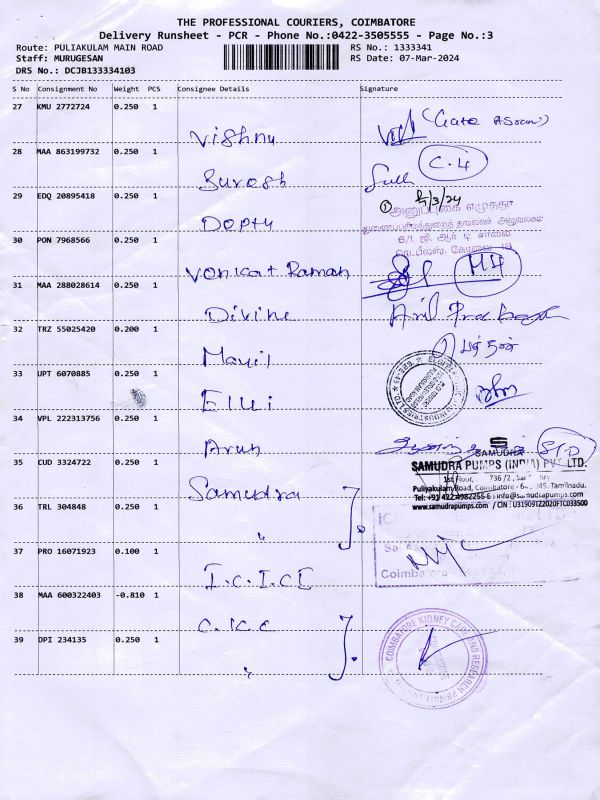 THE PROFESSIONAL COURIERS, COIMBATORE
Delivery Runsheet - PCR - Phone No.:0422-3505555 - Page No.:3
Route: PULIAKULAM MAIN ROAD RS No.: 1333341
Staff: MURUGESAN RS Date: 07-Mar-2024
DRS No.: DCJB133334103
S No Consignment No Weight PCS Consignee Details Signature
27 KMU 2772724 0.250 1
Vishnu
28 MAA 863199732 0.250 1
Suresh C.4
29 EDQ 20895418 0.250 1
Depty
30 PON 7968566 0.250 1
6/1 ஜி. ஆர் டி சாலை
Venkat Raman
31 MAA 288028614 0.250 1
Divine
32 TRZ 55025420 0.200 1
Mayil
33 UPT 6070885 0.250 1
Elui
34 VPL 222313756 0.250 1
Arun
35 CUD 3324722 0.250 1
SAMUDRA
SAMUDRA PUMPS (INDIA) PVT. LTD.
1st Floor, 736/2,
Puliyakulam Road, Coimbatore Tamilnadu.
Tel: +91 422 4982255 info@samudrapumps.com
www.samudrapumps.com / CIN : U31909TZ2020FTC033500
Samudra
36 TRL 304848 0.250 1
"
37 PRO 16071923 0.100 1
Coimbatore
I.C.I.C.I
38 MAA 600322403 -0.810 1
C.K.C
39 DPI 234135 0.250 1
COIMBATORE KIDNEY CARE AND RESEARCH PRIVATE
"